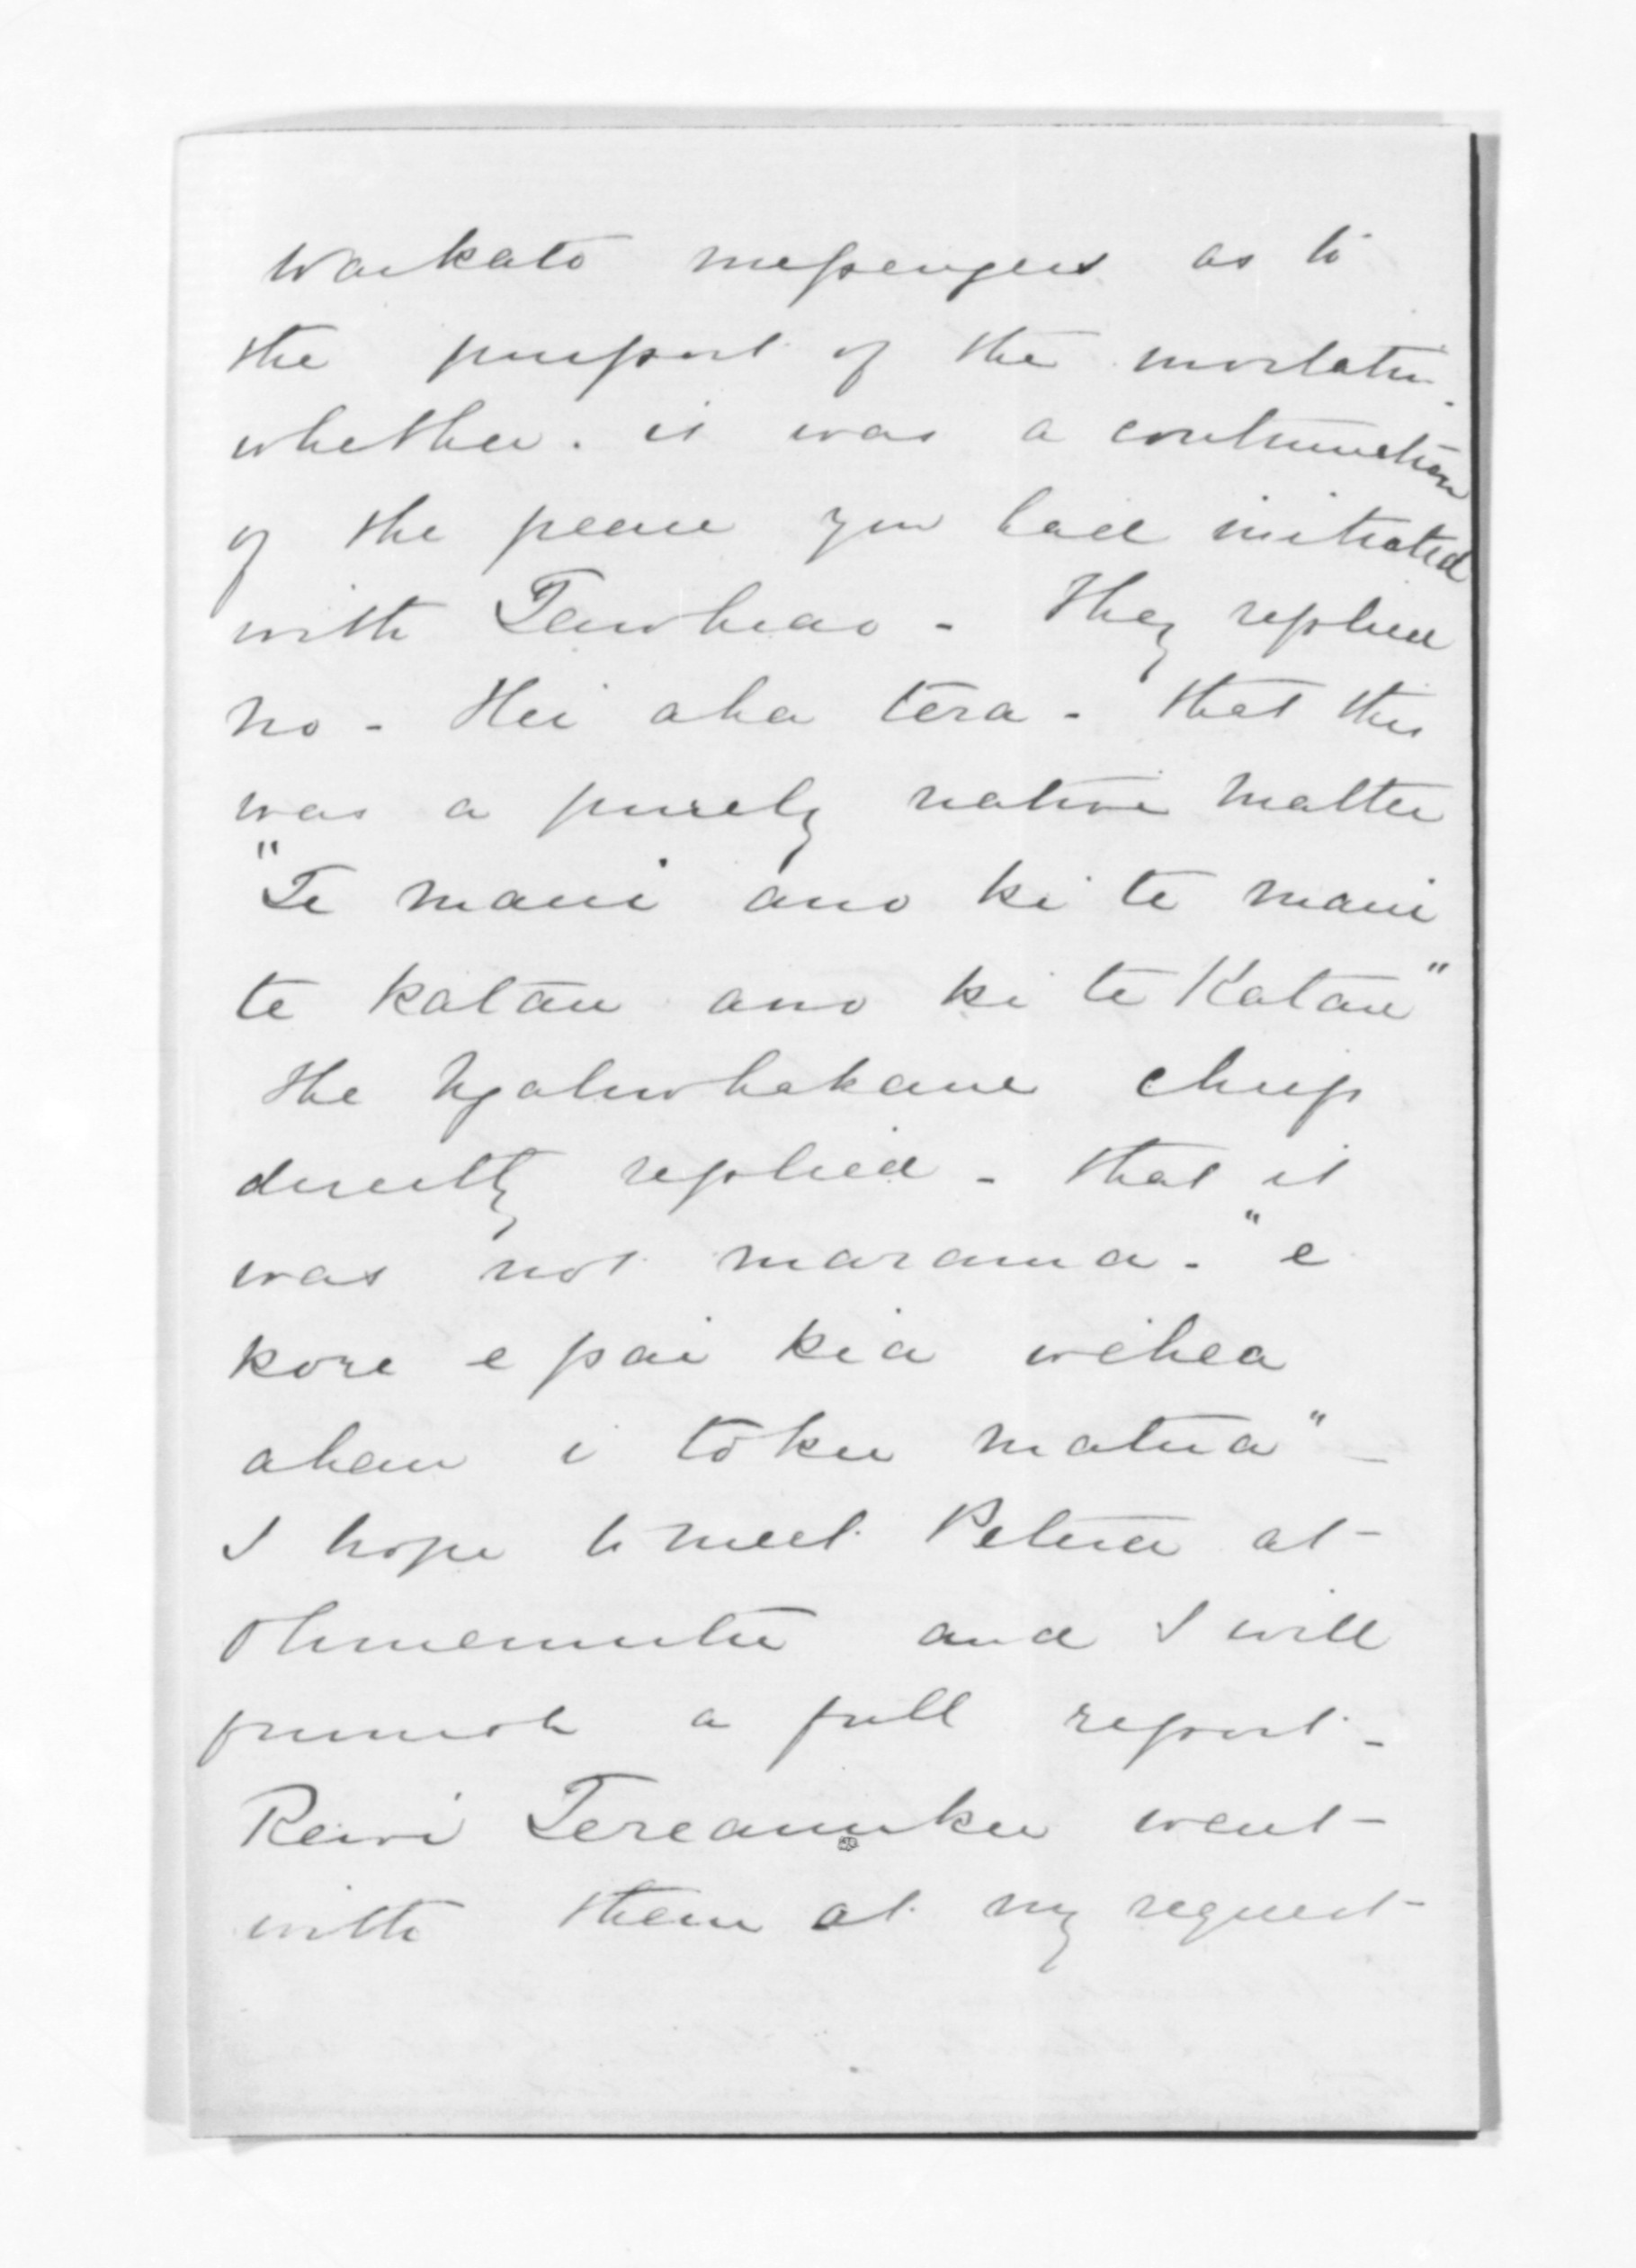 Waikato messengers as to
the purport of the invitation
whether. it was a continuation
of the peace you had initiated
with Tawhiao - They replied
no - Hei aha tera - that this
was a purely native matter
"Te maui ano ki te maui
te katau ano ki te Katau"
the Ngatiwhakaue chiefs
directly replied - that it
was not marama - "e
kore e pai kia wehea
ahau i toku matua" -
I hope to meet Petera at
Ohinemutu and I will
furnish a full report -
Rewi Tereanuku went
with them at my request